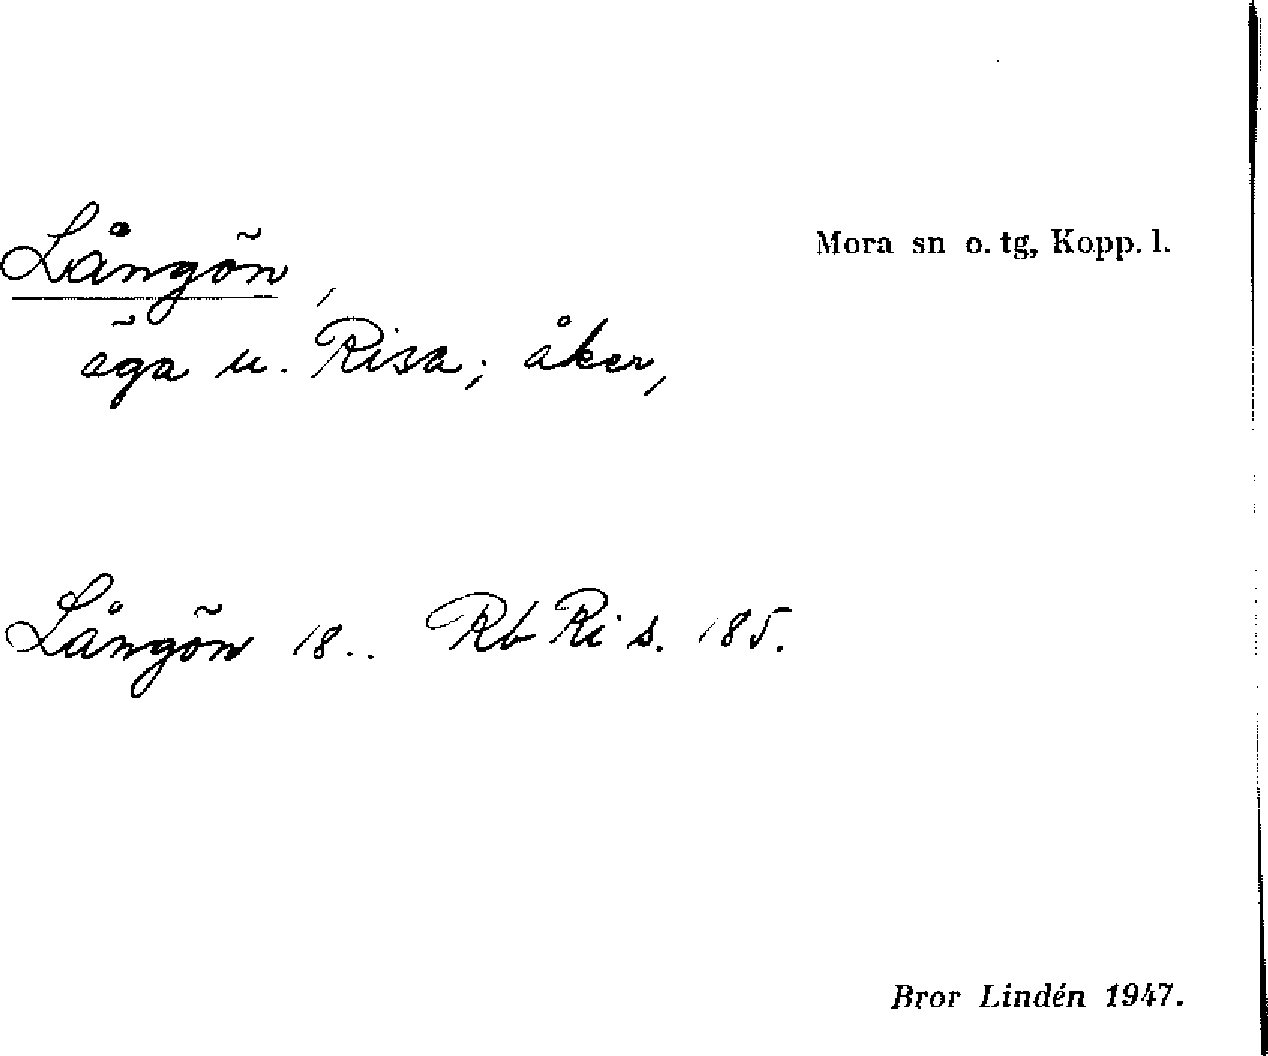 Långön,
Mora sn o. tg, Kopp. l.
äga u. Risa; åker,
Långön 18.. Rb Ri s. 185.
Bror Lindén 1947.